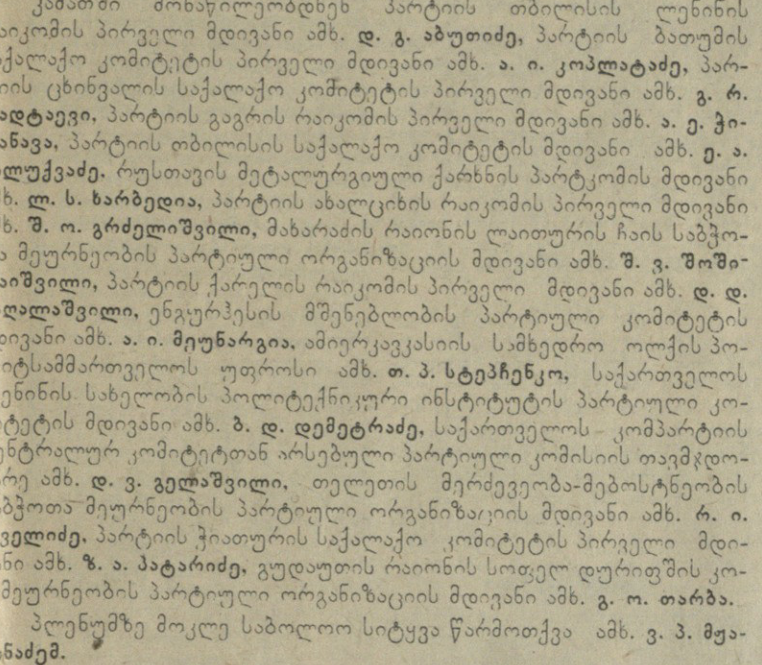 კამათში მონაწილეობდნენ პარტიის თბილისის ლენინის
აიკომის პირველი მდივანი ამხ. დ. გ. აბუთიძე, პარტიის ბათუმის
აქალაქო კომიტეტის პირველი მდივანი ამხ. ა. ი. კოპლატაძე, პარ-
იის ცხინვალის საქალაქო კომიტეტის პირველი მდივანი ამხ. გ. რ.
ადტაევი, პარტიის გაგრის რაიკომის პირველი მდივანი ამხ. ა. ე. ჭი-
ანავა, პარტიის თბილისის საქალაქო კომიტეტის მდივანი ამხ. ე. ა.
ლუქვაძე. რუსთავის მეტალურგიული ქარხნის პარტკომის მდივანი
ხ. ლ. ს. ხარბედია, პარტიის ახალციხის რაიკომის პირველი მდივანი
ხ. შ. ო. გრძელიშვილი, მახარაძის რაიონის ლაითურის ჩაის საბჭო-
ა მეურნეობის პარტიული ორგანიზაციის მდივანი ამხ. შ. ვ. შოში-
აიშვილი, პარტიის ქარელის რაიკომის პირველი მდივანი ამხ. დ. დ.
ღალაშვილი, ენგურჰესის მშენებლობის პარტიული კომიტეტის
დივანი ამხ. ა. ი. მეუნარგია, ამიერკავკასიის სამხედრო ოლქის პო-
იტსამმართველოს უფროსი ამხ. თ. პ. სტეპჩენკო, საქართველოს
ენინის სახელობის პოლიტექნიკური ინსტიტუტის პარტიული კო-
ტეტის მდივანი ამხ. ბ. დ. დემეტრაძე, საქართველოს კომპარტიის
ენტრალურ კომიტეტთან არსებული პარტიული კომისიის თავმჯდო-
რე ამხ. დ. ვ. გელაშვილი, თელეთის მერძევეობა-მებოსტნეობის
აბჭოთა მეურნეობის პარტიული ორგანიზაციის მდივანი ამხ. რ. ი.
ველიძე, პარტიის ჭიათურის საქალაქო კომიტეტის პირველი მდი-
ნი ამხ. ზ. ა. პატარიძე, გუდაუთის რაიონის სოფელ დურიფშის კო-
მეურნეობის პარტიული ორგანიზაციის მდივანი ამხ. გ. ო. თარბა.
პლენუმზე მოკლე საბოლოო სიტყვა წარმოთქვა ამხ. ვ. პ. მჟა-
ანაძემ.